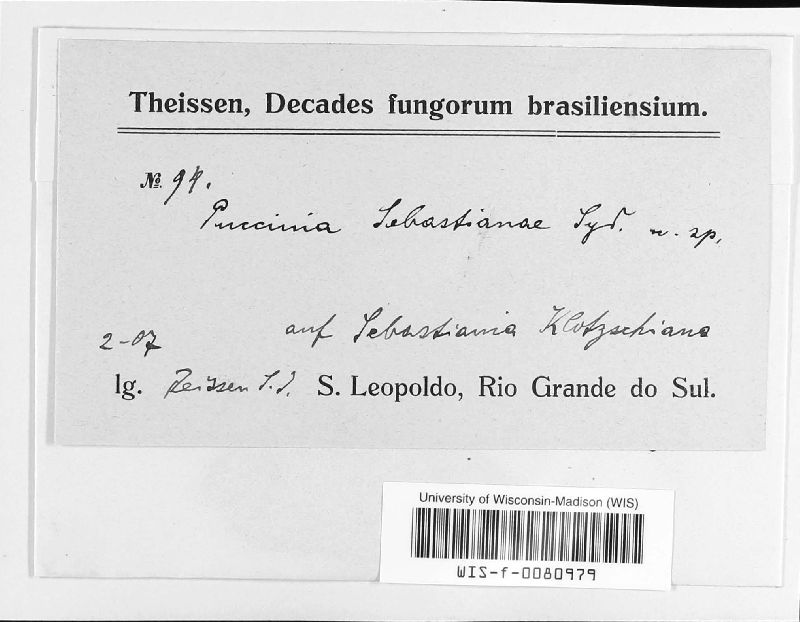 Theissen, Decades fungorum brasiliensium.
№. 94.
Puccinia Sebastianae Syd. n. sp.
auf Sebastiania Klotzschiana
2-07
lg. S. J. S. Leopoldo, Rio Grande do Sul.
University of Wisconsin-Madison (WIS)
WIS-f-0080979